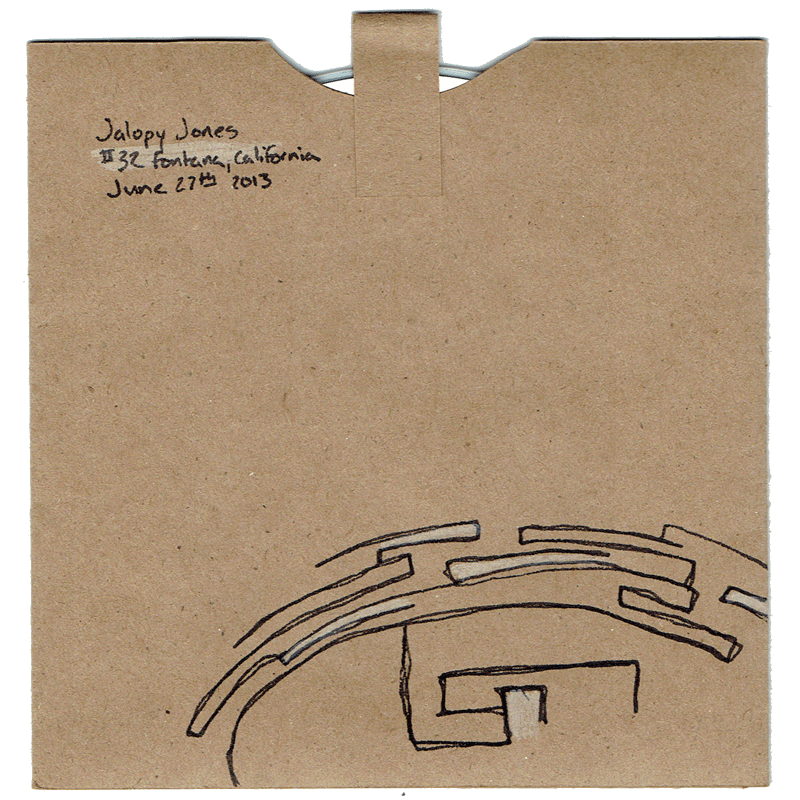 Jalopy Jones
II 32 Fontana, California
June 27th 2013